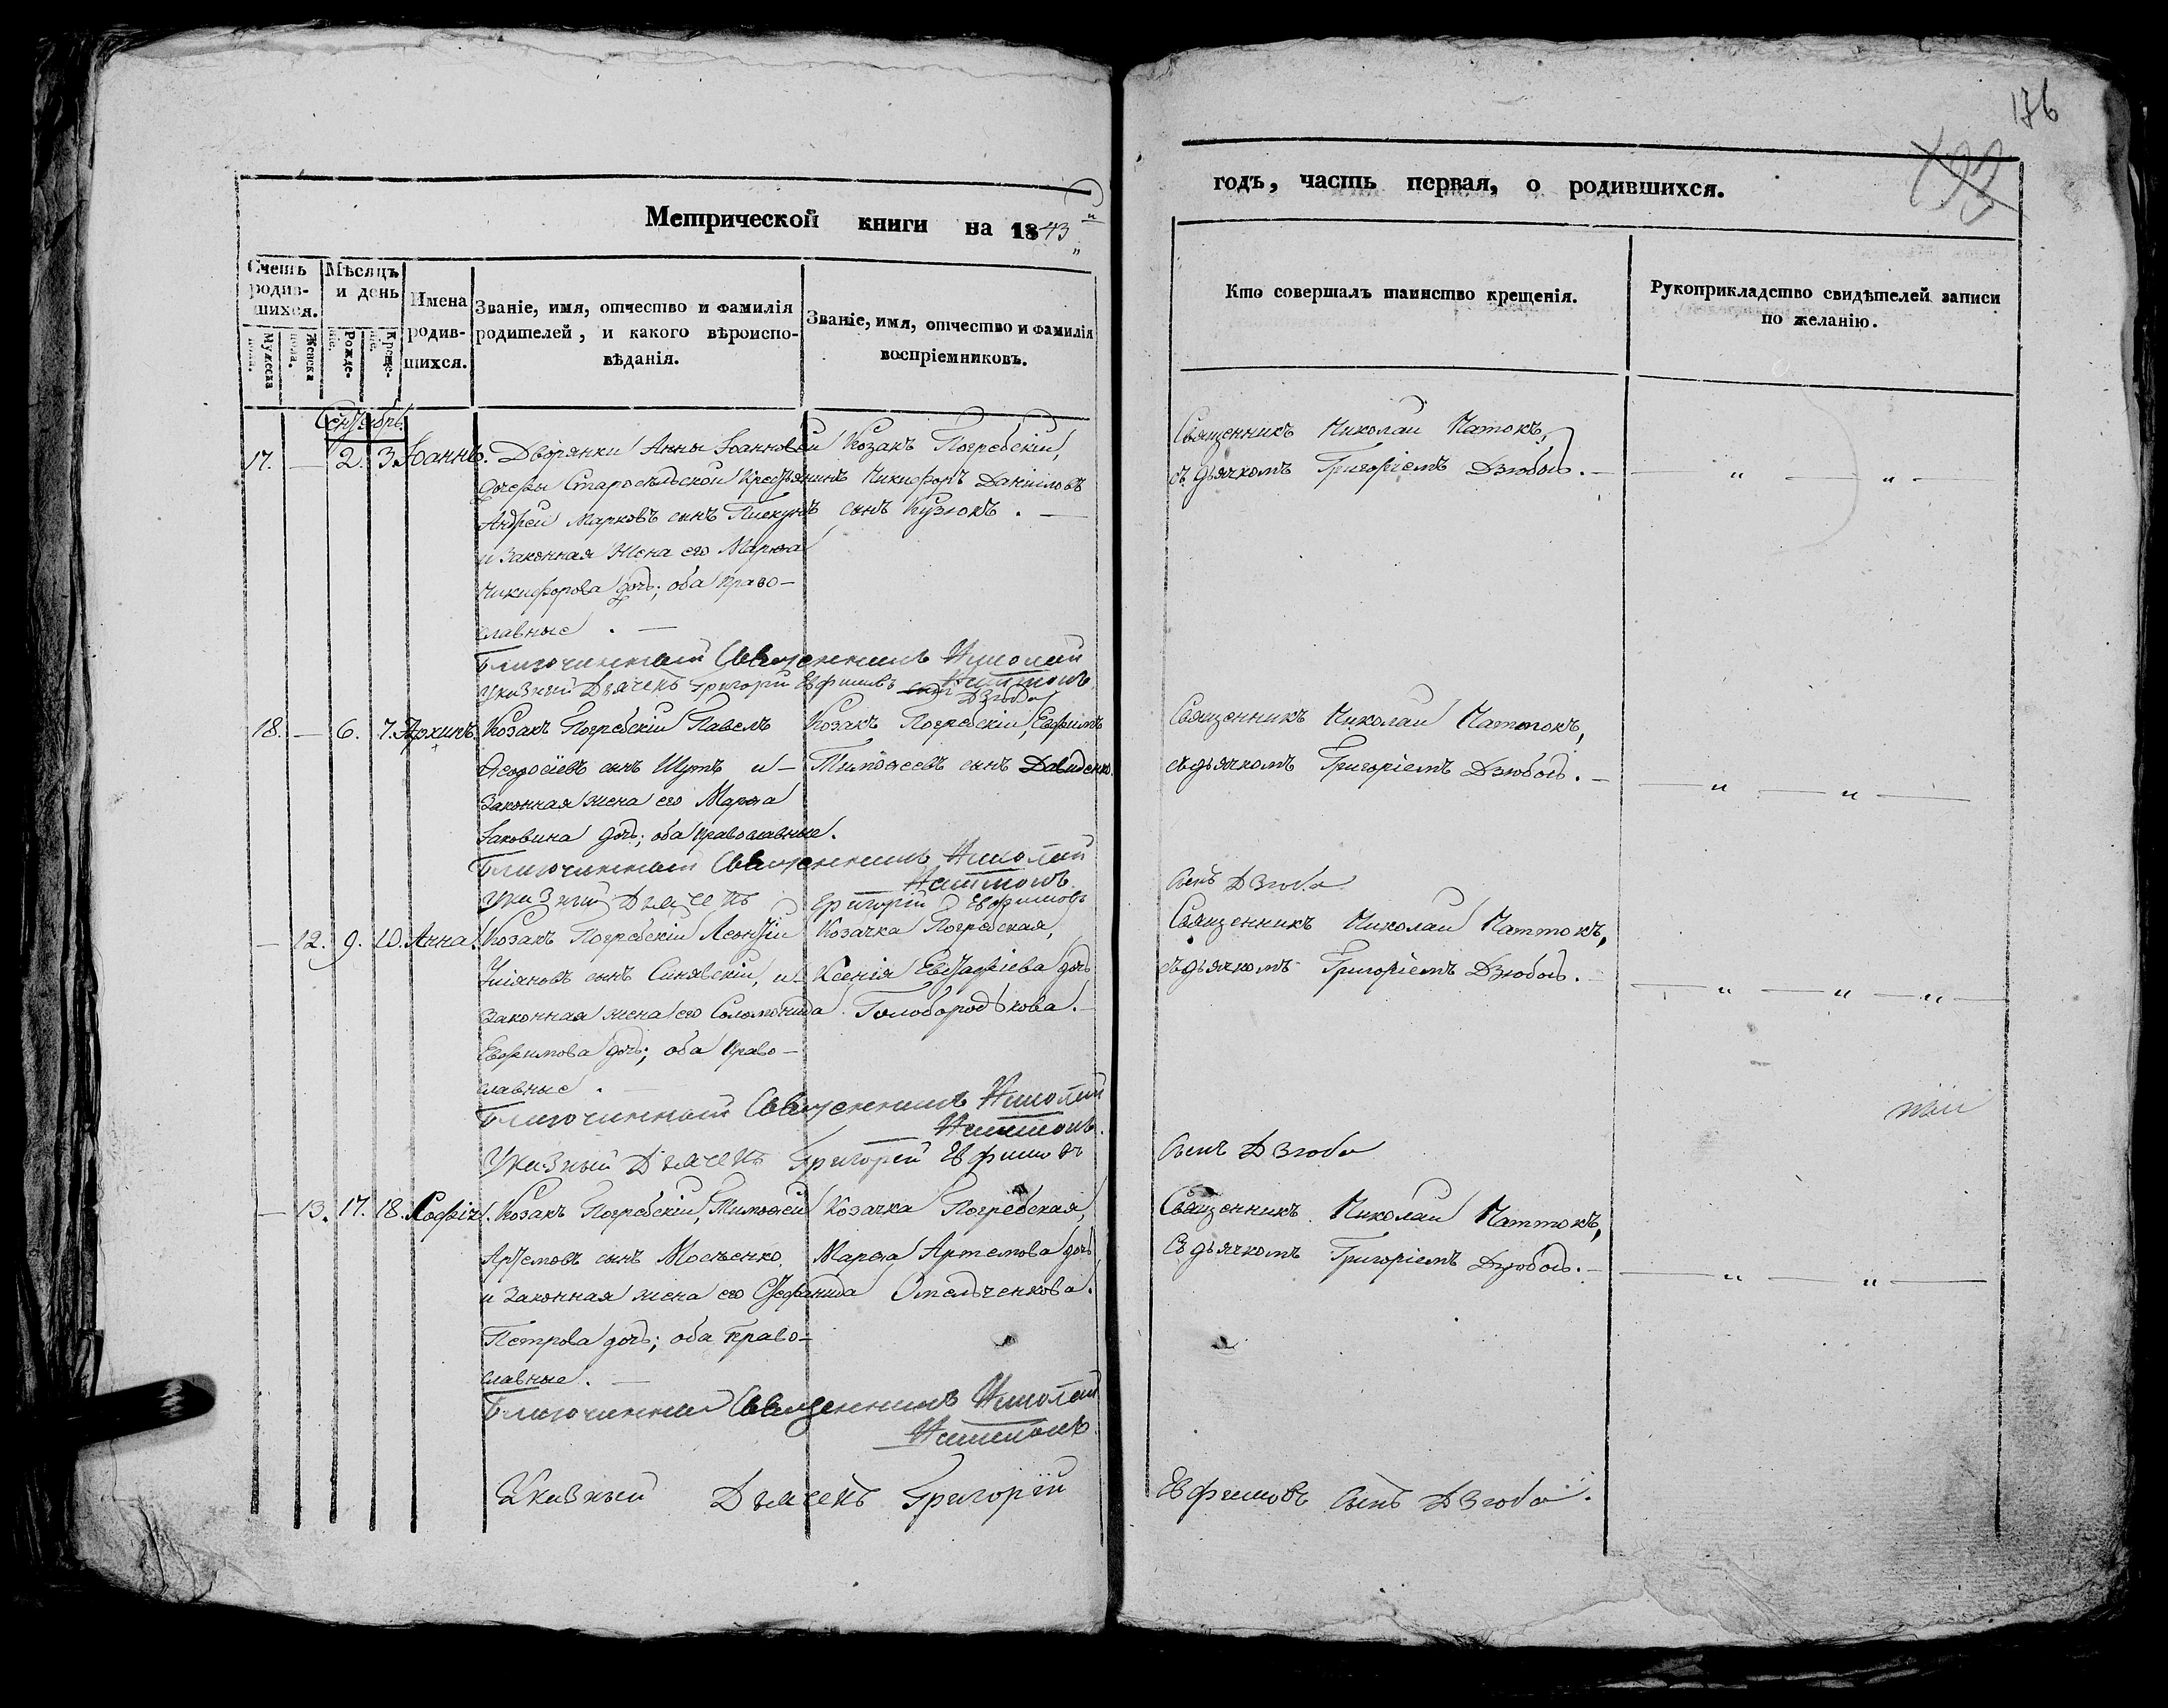 176
193
Метрической книги на 1843
годъ, часть первая, о родившихся.
Счетъ родив-шихся.
Мужеска пола.
Женска пола.
Мѣсяцъ и день
Рожде-нія.
Креще-нія.
Имена родив-шихся.
Званіе, имя, отчество и фамилія родителей, и какого вѣроиспо-вѣданія.
Званіе, имя, отчество и фамилія воспріемниковъ.
Кто совершалъ таинство крещенія.
Рукоприкладство свидѣтелей записи по желанію.
Сентябрь.
17. — 2. 3. Іоаннъ.
Дворянки Анны Іоанновой
дочери Старосельской Крестьянинъ
Андрей Марковъ сынъ Пискунъ
и законная жена его Марѳа
Никифорова дочь; оба право-
славные. —
Козакъ Погребскій,
Никифоръ Даніиловъ
сынъ Кузюкъ. —
Священникъ Николай Наттокъ,
съ дьячкомъ Григоріемъ Дзюбою. —
Благочинный Священникъ Николай
Наттокъ
Указный Дьячекъ Григорій Евфимовъ
Дзюба
18. — 6. 7. Архипъ.
Козакъ Погребскій Павелъ
Ѳеодосіевъ сынъ Шутъ и —
законная жена его Марѳа
Іаковина дочь; оба православные.
Козакъ Погребскій, Евфимъ
Тимоѳеевъ сынъ Давиденко.
Священникъ Николай Наттокъ,
съ дьячкомъ Григоріемъ Дзюбою. —
Благочинный Священникъ Николай
Наттокъ
Указный Дьячекъ Григорій Евфимовъ
сынъ Дзюба
— 12. 9. 10. Анна.
Козакъ Погребскій Леонтій
Уліановъ сынъ Синявскій, и
законная жена его Соломонида
Евфимова дочь; оба право-
славные. —
Козачка Погребская,
Ксенія Евстафіева дочь
Голобородькова. —
Священникъ Николай Наттокъ,
съ дьячкомъ Григоріемъ Дзюбою. —
Благочинный Священникъ Николай
Наттокъ.
Указный Дьячекъ Григорій Евфимовъ
сынъ Дзюба
— 13. 17. 18. Софія.
Козакъ Погребскій, Тимоѳей
Артемовъ сынъ Мосьенко,
и законная жена его Стефанида
Петрова дочь; оба право-
славные. —
Козачка Погребская,
Марѳа Артемова дочь
Омельченкова.
Священникъ Николай Наттокъ,
Съ дьячкомъ Григоріемъ Дзюбою. —
Благочинный Священникъ Николай
Наттокъ.
Указный Дьячекъ Григорій
Евфимовъ сынъ Дзюба.